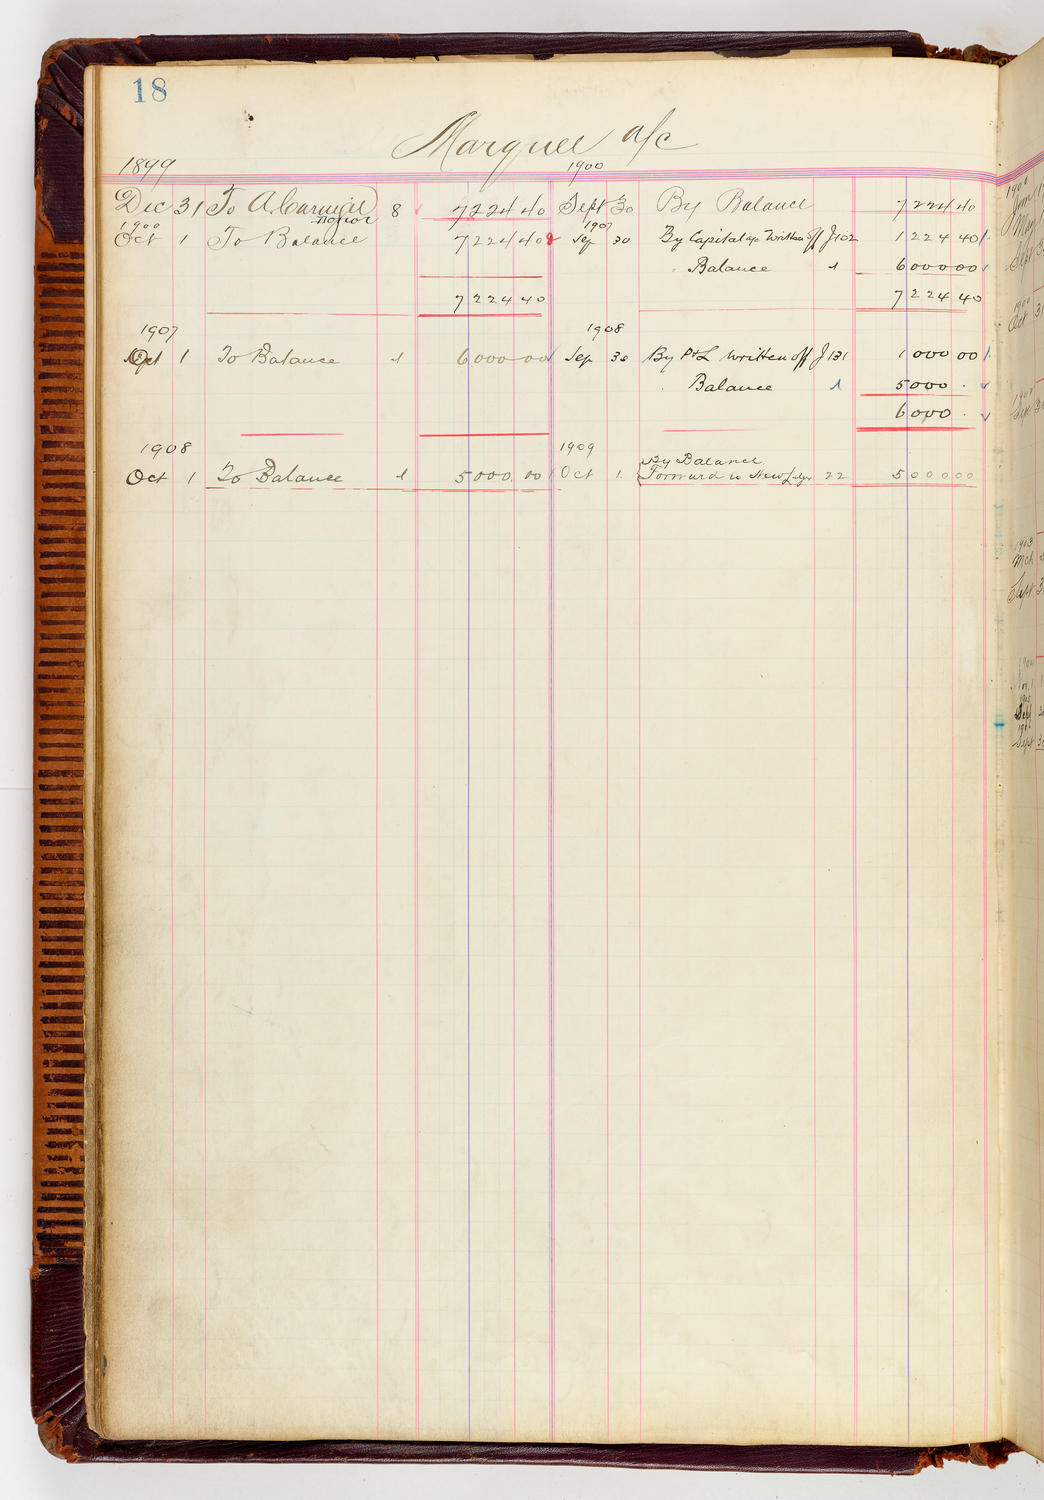 18
Marquee a/c
1899 1900
Dec 31 To A. Carnegie 8 7224 40 Sept 30 By Balance 7224 40
Donor
1900 1907
Oct 1 To Balance 7224 40 Sep 30 By Capital a/c Written off J 102 1224 40
Balance 6000 00
7224 40 7224 40
1907 1908
Oct 1 To Balance 6000 00 Sep 30 By P & L Written off J 131 1000 00
Balance 5000 .
6000 .
1908 1909
By Balance
Oct 1 To Balance 5000 00 Oct 1. Forward to New Ldgr 22 5000 00
1900
Jan
May
Sept 3
1900
Oct 31
1903
Mch
Sept 3
Nov. 1
Sept
Sept 30